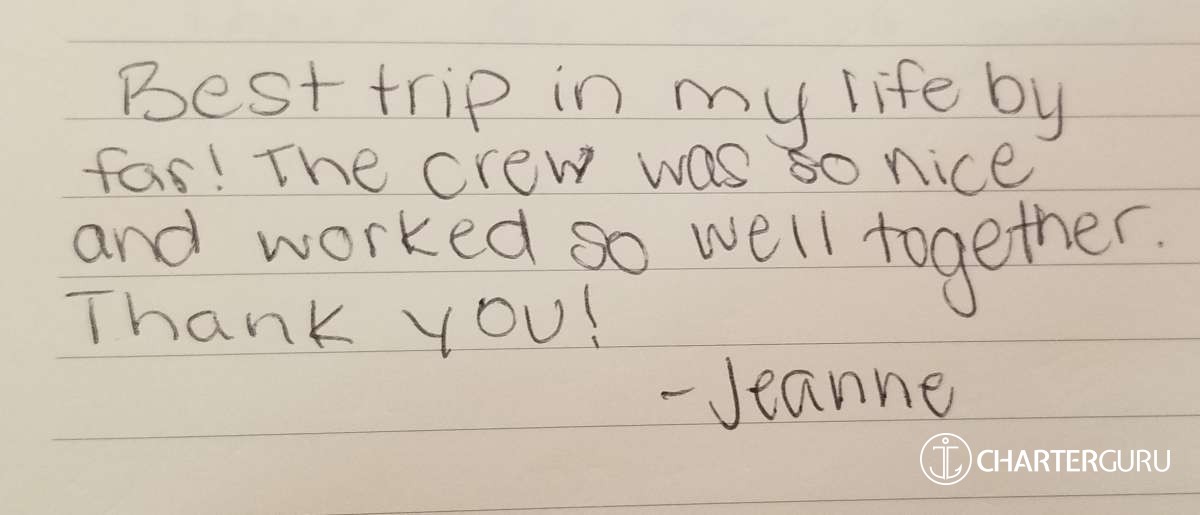 Best trip in my life by
far! The crew was so nice
and worked so well together.
Thank you!
-Jeanne
CHARTERGURU